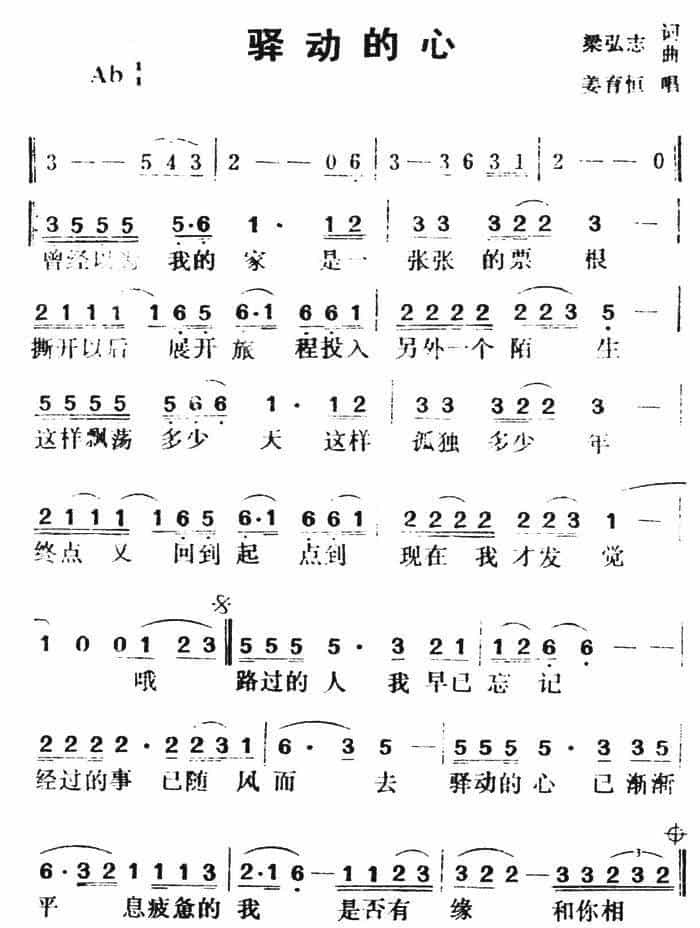 驿动的心
梁弘志 词曲
Ab
姜育恒 唱
3 — — 5 4 3 | 2 — — 0 6 | 3 — 3 6 3 1 | 2 — — 0
3 5 5 5 5·6 1· 1 2 | 3 3 3 2 2 3 —
曾经以为 我的 家 是一 张张 的票 根
2 1 1 1 1 1 6 5 6·1 6 6 1 | 2 2 2 2 2 2 3 5 —
撕开以后 展开 旅 程投入 另外一个陌 生
5 5 5 5 5 6 6 1· 1 2 | 3 3 3 2 2 3 —
这样飘荡 多少 天 这样 孤独 多少 年
2 1 1 1 1 6 5 6·1 6 6 1 | 2 2 2 2 2 2 3 1 —
终点 又 回到 起 点到 现在 我 才发 觉
1 0 0 1 2 3 5 5 5 5· 3 2 1 | 1 2 6 6 —
哦 路过的 人 我 早已 忘记
2 2 2 2· 2 2 3 1 | 6· 3 5 — | 5 5 5 5· 3 3 5
经过的事 已随 风而 去 驿动的 心 已渐渐
6·3 2 1 1 1 3 | 2·1 6 — 1 1 2 3 | 2 — — 3 3 2 3 2
平 息疲惫的 我 是否有 缘 和你相